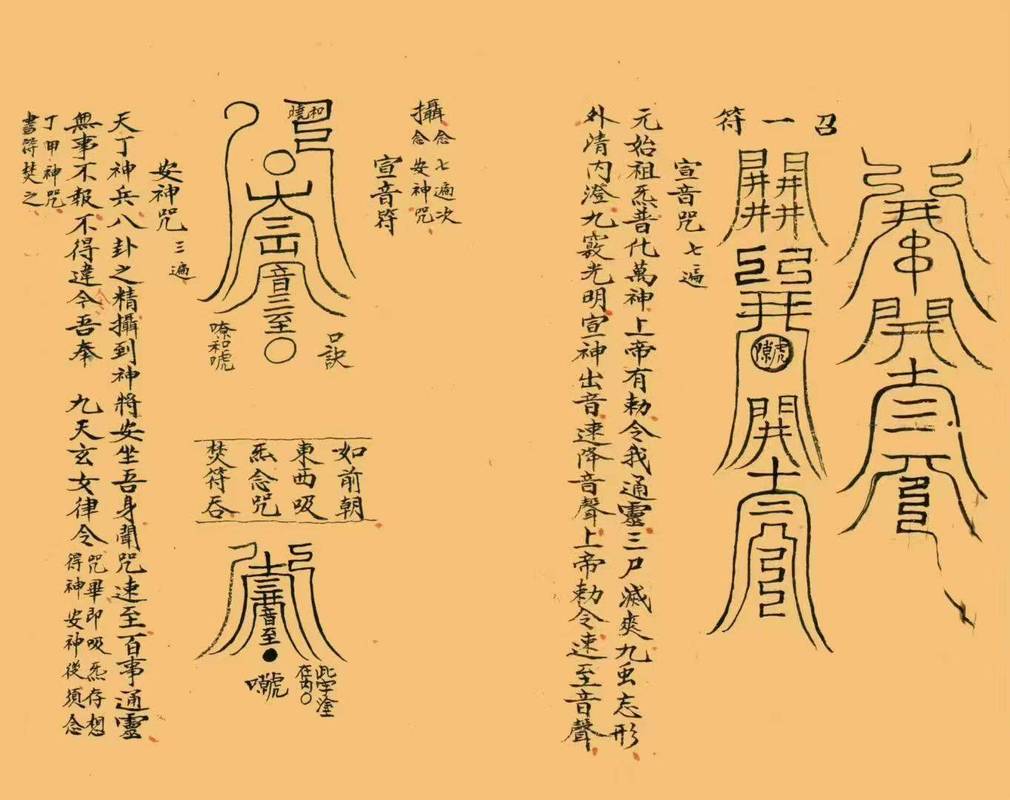 召一符
宣音咒七遍
元始祖炁普化萬神上帝有勅令我通靈三尸滅爽九虫忘形
外清内澄九竅光明宣神出音速降音聲上帝勅令速至音聲
攝念七遍次
念安神咒
宣音符
口訣
如前朝
東西吸
炁念咒
焚符吞
此字塗
在内〇
安神咒三遍
天丁神兵八卦之精攝到神將安坐吾身聞咒速至百事通靈
無事不報不得違令吾奉 九天玄女律令咒畢即吸炁存想
得神安神後須念
丁甲神咒
書符焚之